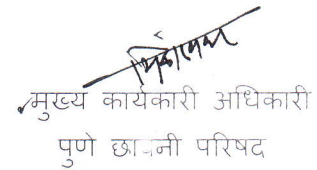 मुख्य कार्यकारी अधिकारी
पुणे छावनी परिषद